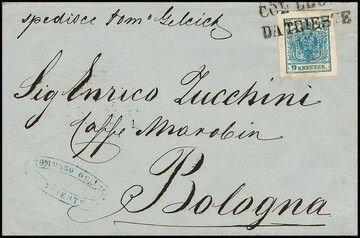 spedisce Tom° Gelcich
COL
DA TRIESTE
9 KREUZER
Sig Enrico Zucchini
Caffe Marabin
Bologna
TOMMASO
TRIESTE